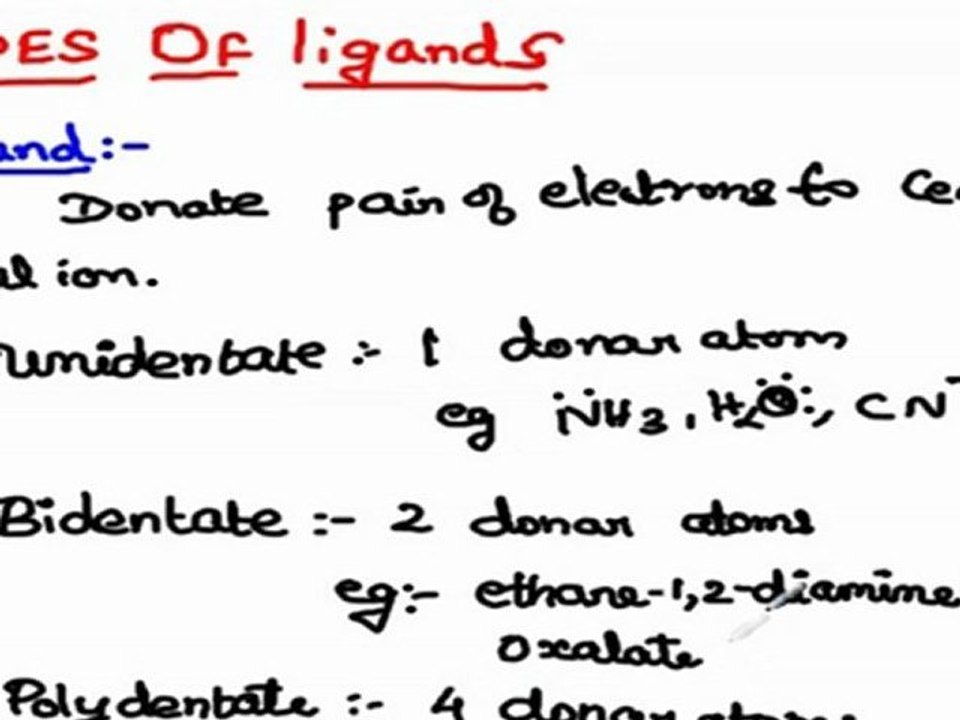 PES Of ligands
and:-
Donate pair of electrons to Ce
al ion.
unidentate :- 1 donar atom
eg NH3, H2O:, CN-
Bidentate :- 2 donar atoms
eg:- ethane-1,2-diamine
Oxalate
Polydentate :- 4 donar atoms